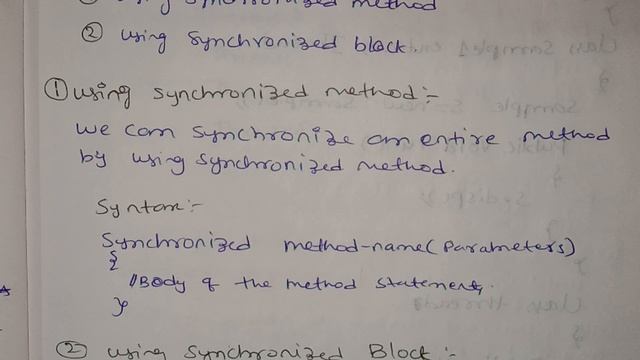 ① using synchronized method
② using synchronized block.
① using synchronized method :-
we can synchronize an entire method
by using synchronized method.
Syntax:-
Synchronized method-name(Parameters)
{
//Body of the method statements.
}
② using Synchronized Block :-